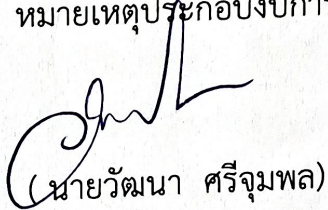 หมายเหตุประกอบงบการ
(นายวัฒนา ศรีจุมพล)